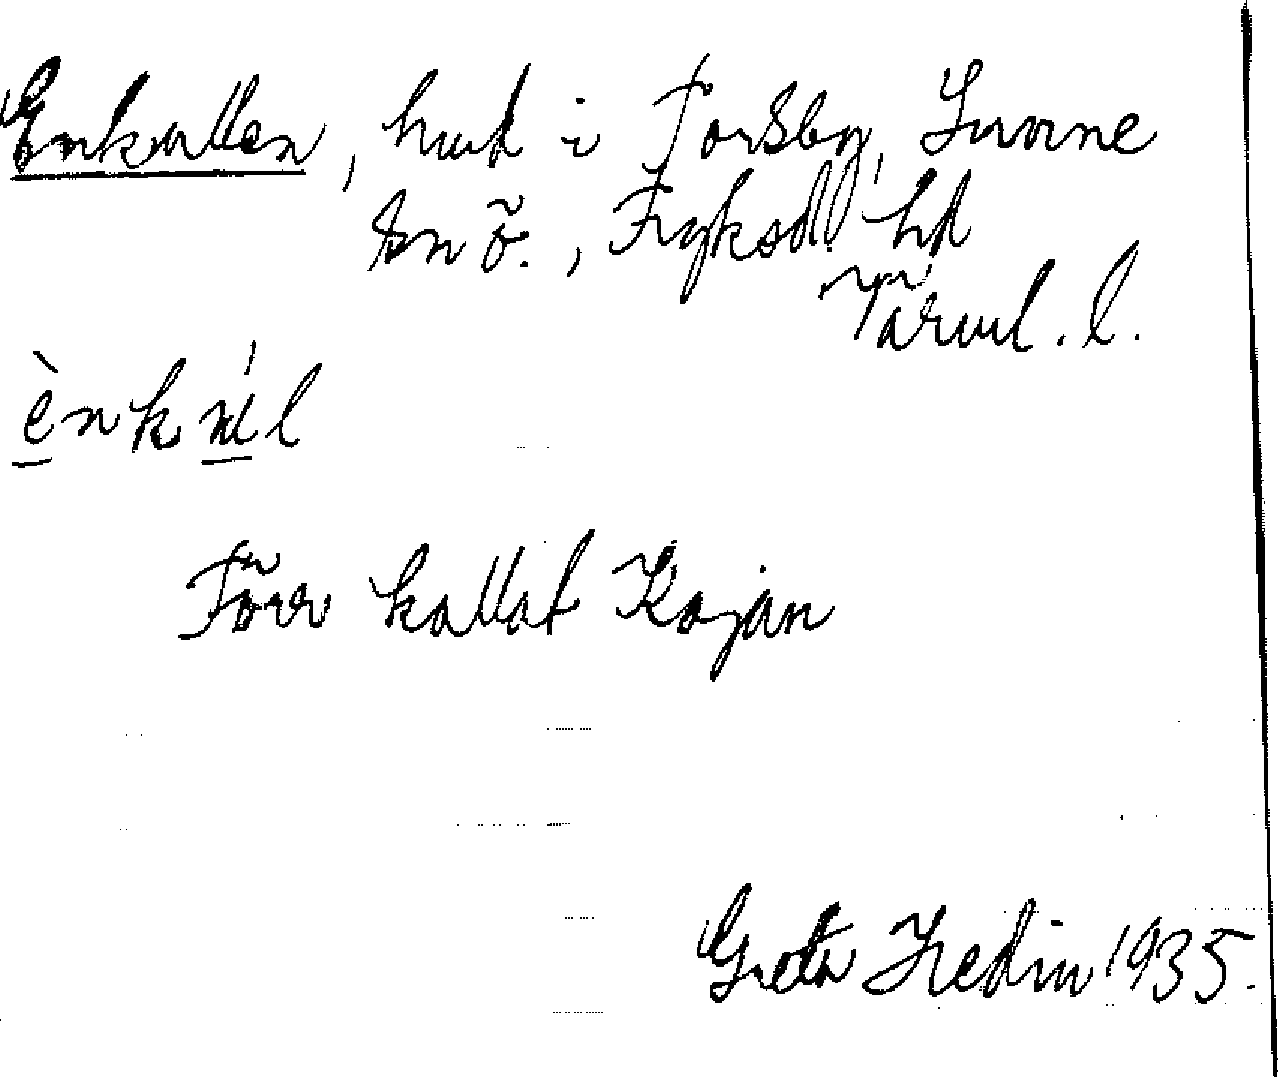 Enkullen, hmd i Torsby, Sunne
sn ö., Fryksd. hd
Värml. l.
ènkúl
Förr kallat Kojan
Greta Hedin 1935.